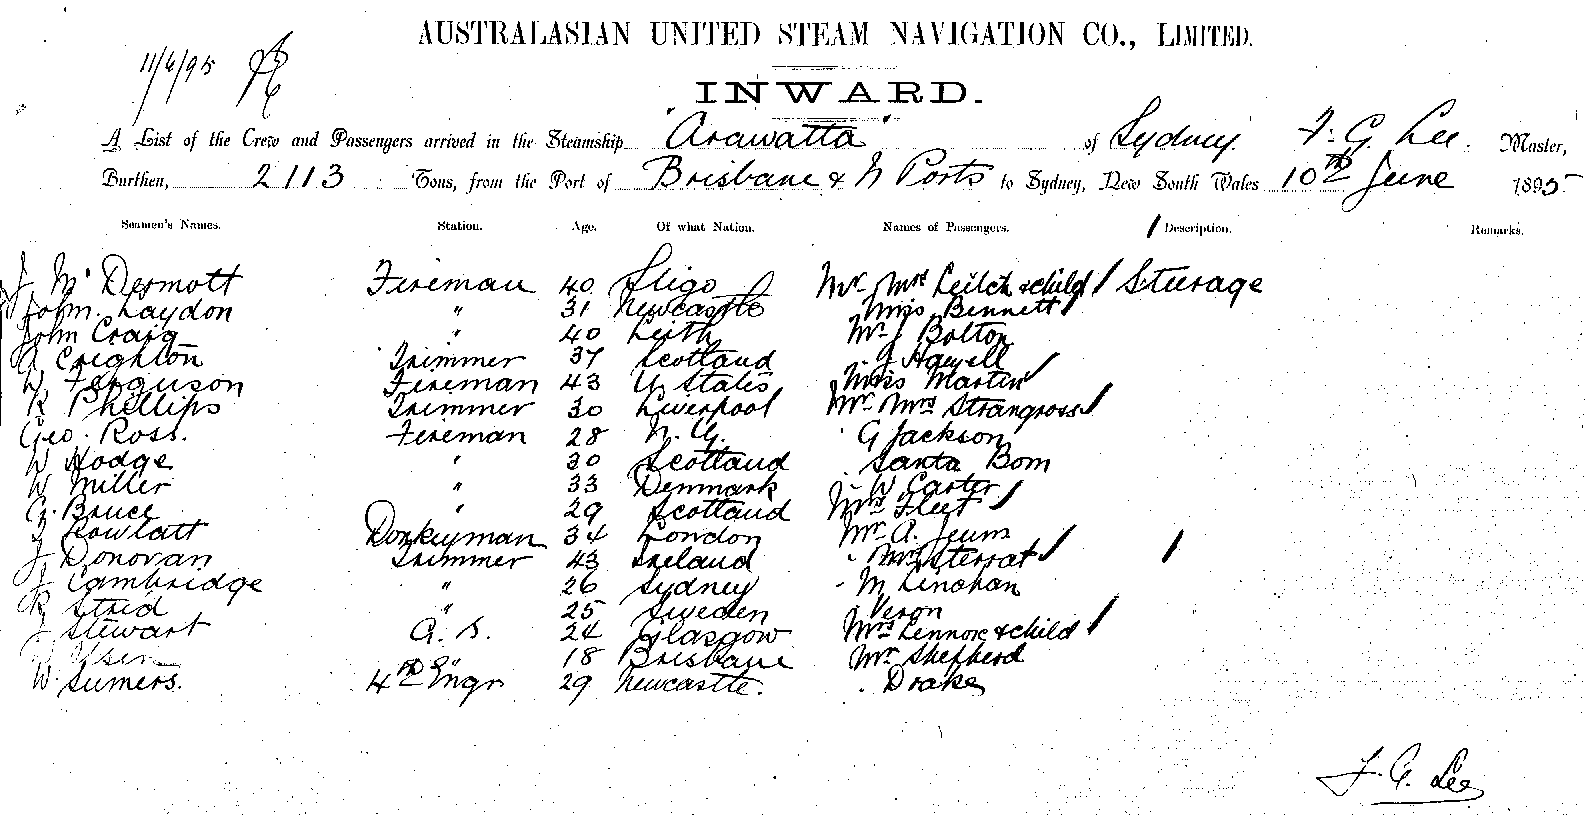 AUSTRALASIAN UNITED STEAM NAVIGATION CO., LIMITED.
11/6/95
INWARD.
A List of the Crew and Passengers arrived in the Steamship "Arawatta" of Sydney. F. G. Lee. Master,
Burthen, 2113 Tons, from the Port of Brisbane & N Ports to Sydney, New South Wales 10th June 1895
Seamen's Names. Station. Age. Of what Nation. Names of Passengers. Description. Remarks.
J McDermott Fireman 40 Sligo Mr Mrs Leitch & child Steerage
John Laydon " 31 Newcastle Miss Bennett
John Craig " 40 Leith Mr J Bolton
Creighton Trimmer 37 Scotland
W Ferguson Fireman 43 U States Miss Martin
R Phillips Trimmer 30 Liverpool Mr Mrs Strangross
Geo. Ross. Fireman 28 N. Y. G Jackson
W Hodge " 30 Scotland Santa Bom
W Miller " 33 Denmark W Carter
Bruce " 29 Scotland Mrs Fleet
Rowlatt Donkeyman 34 London Mr A.
J Donovan Trimmer 43 Ireland
J Cambridge " 26 Sydney M Linahan
R Strid " 25 Sweden Veron
J Stewart A. B. 24 Glasgow Mrs Lennox & child
W " 18 Brisbane Mr Shepherd
W. Sumers. 4th Engr 29 Newcastle. Drake
F. G. Lee